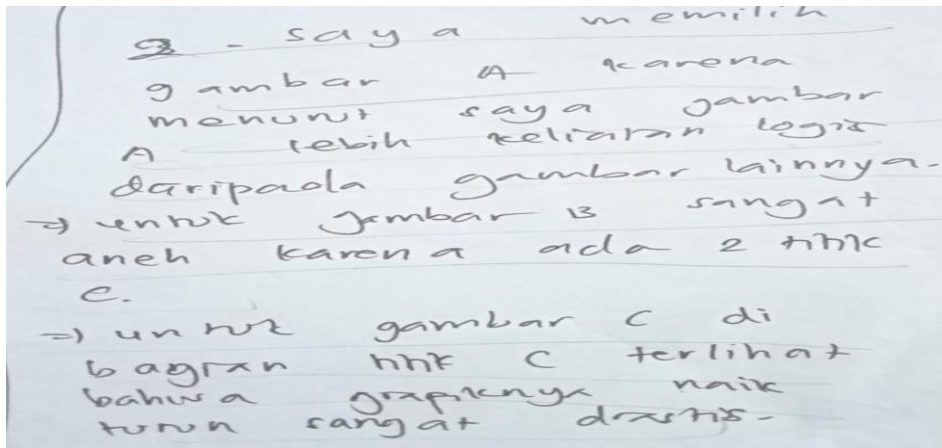 2 - saya memilih
gambar A karena
menurut saya gambar
A lebih keliatan logis
daripada gambar lainnya.
⇒ untuk gambar B sangat
aneh karena ada 2 titik
e.
⇒ untuk gambar C di
bagian titik C terlihat
bahwa grapiknya naik
turun sangat drastis.